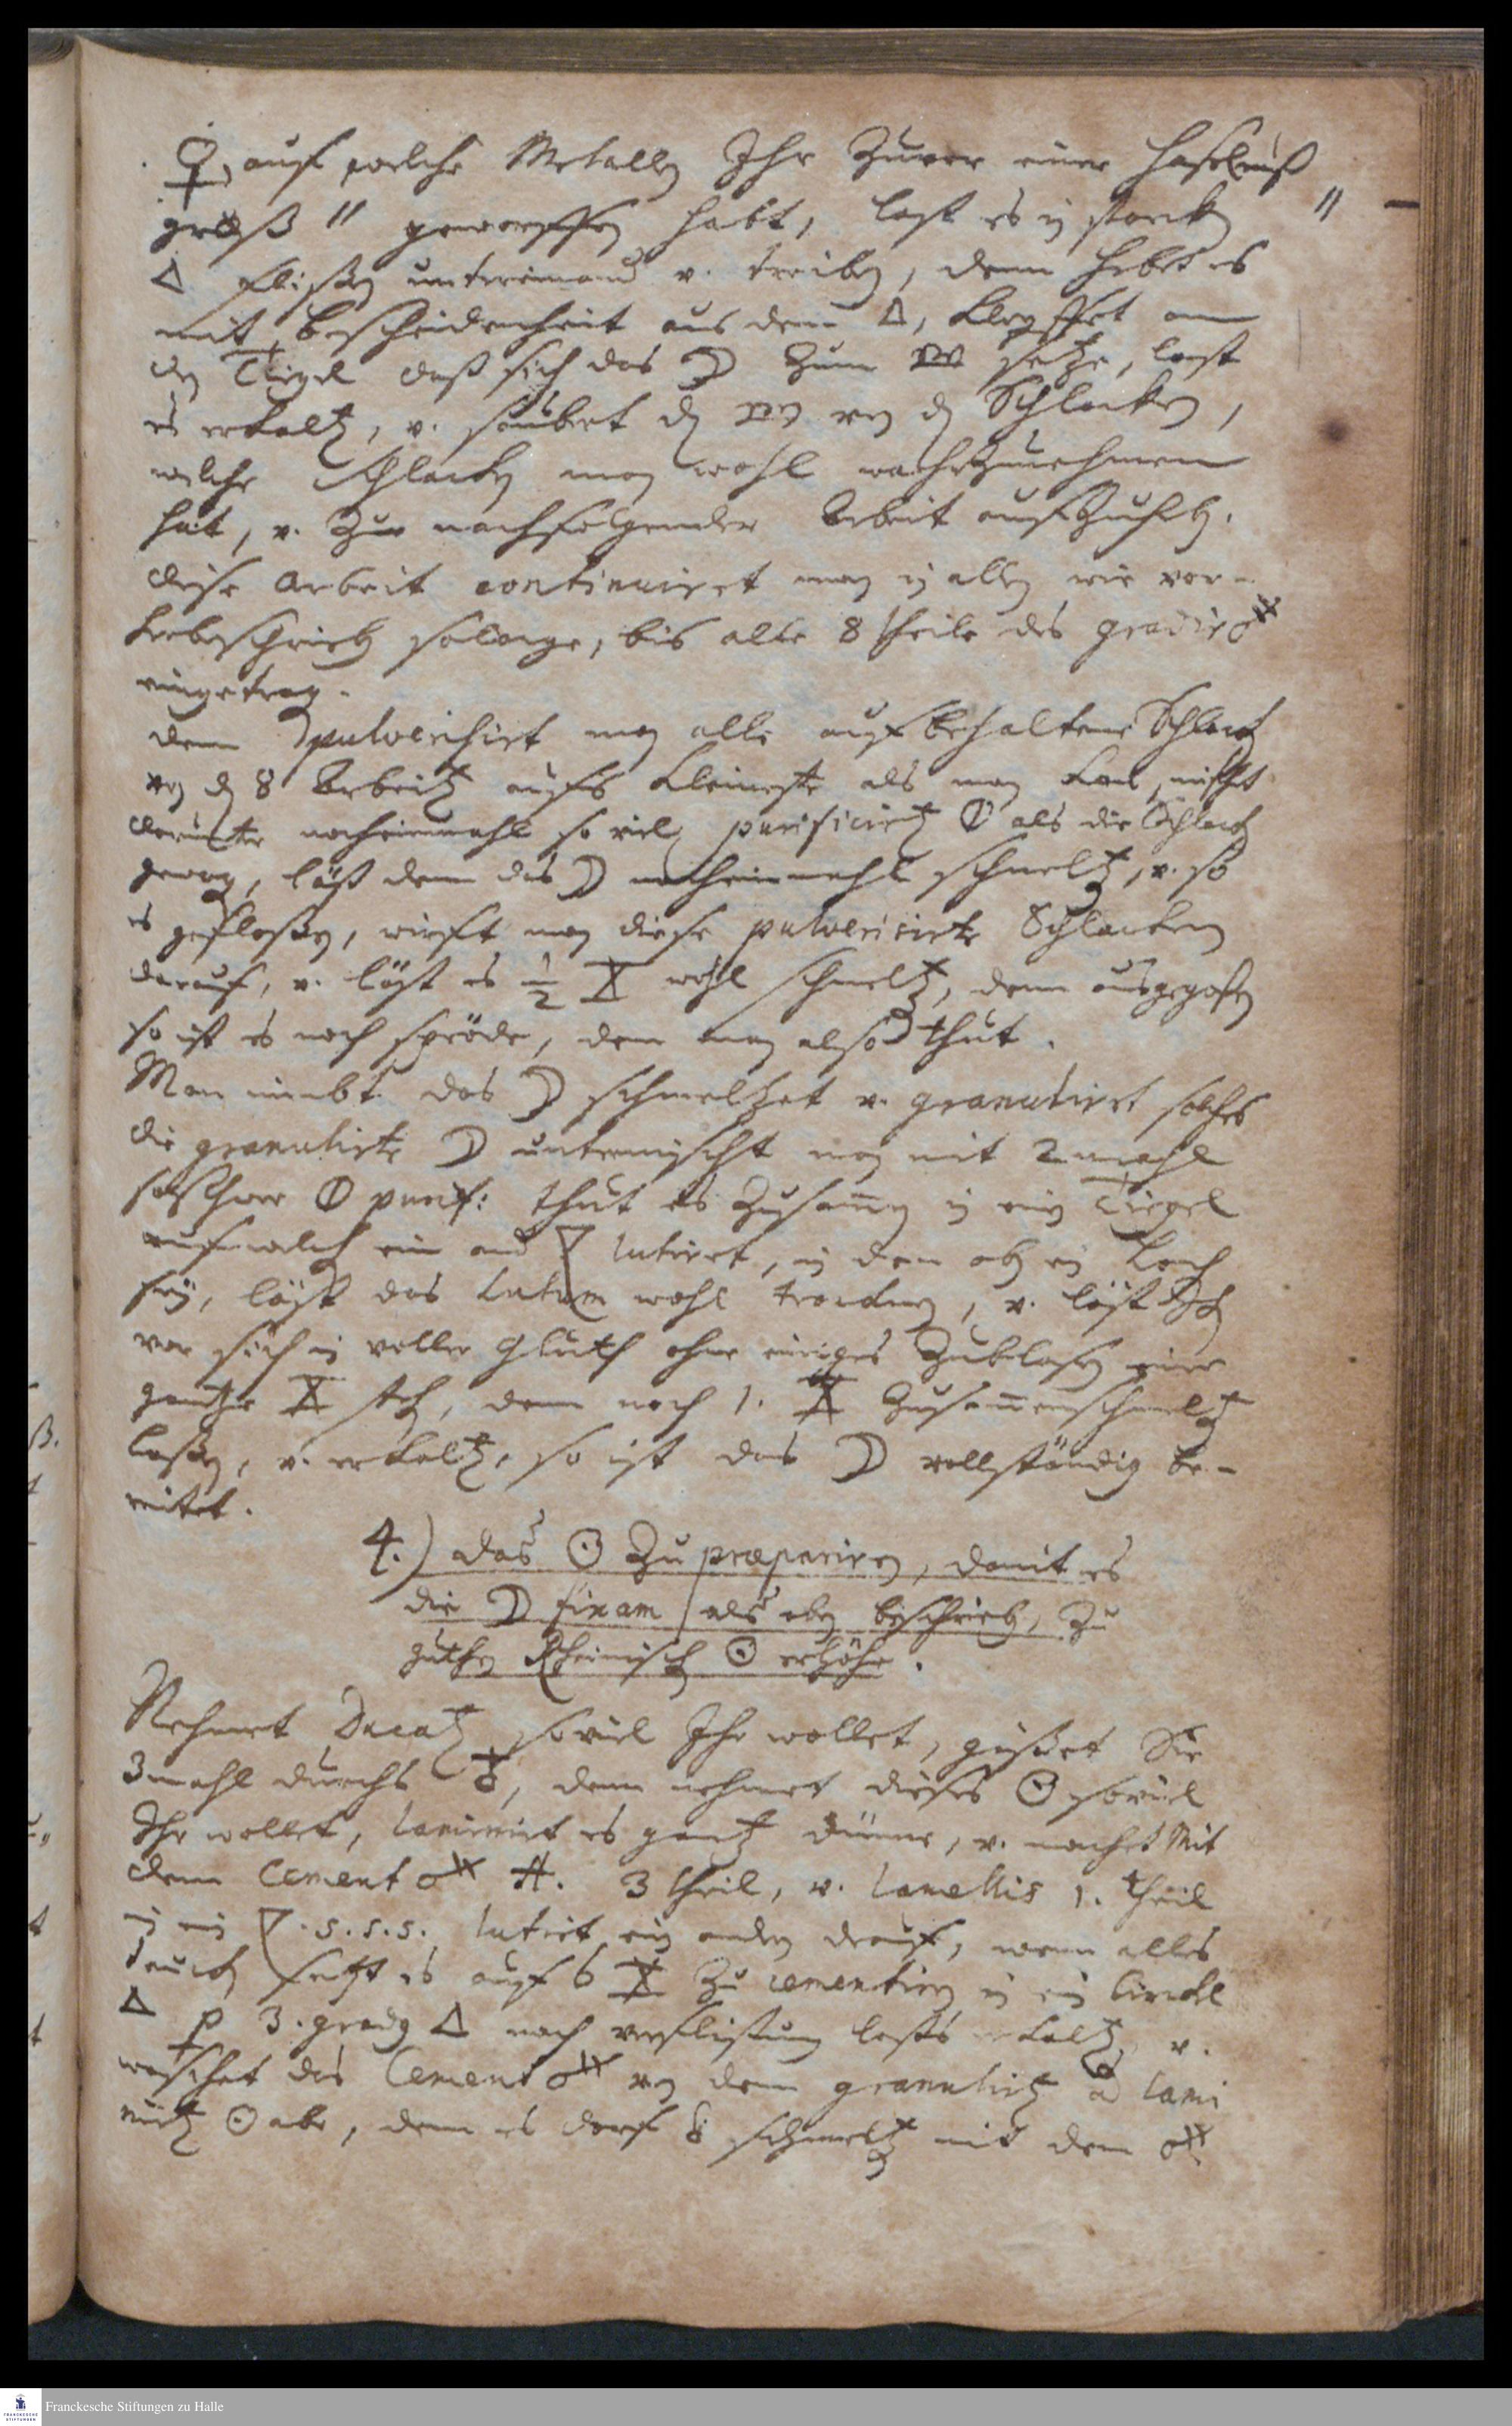 ♀, auf welche Metallen Ihr Zuvor einer Haselnuß
groß " geworffen habt, last es in starcken " –
△ flißen untereinand v. treiben, denn hebet es
mit Bescheidenheit aus dem △, klopffet an
den Tiegel daß sich das ☽ zum setze, last
es erkalten, v. saubert den von den Schlacken,
welche Schlacken man wohl wahrzunehmen
hat, v. Zur nachfolgender Arbeit aufzuheben.
diese Arbeit continuiret man in allen wie vor-
herbeschrieben solange, bis alle 8 theile des gradir
eingetragen.
denn pulverisirt man alle aufbehaltene Schlacken
von den 8 Arbeiten aufs kleineste als man kan, mischt
darunter nocheinmahl so viel purificirten ⦶ als die Schlacken
gewogen, läst denn das ☽ nocheinmahl schmeltzen, v. so
es gefloßen, wirfft man diese pulverisirte Schlacken
darauf, v. läst es ½ wohl schmeltzen, denn ausgegoßen
so ist es noch spröde, dem man also thut.
Man nimbt das ☽ schmeltzet v. granulirt solches
die granulirte ☽ untermischt man mit 2 mahl
so schwer ⦶ purif: thut es Zusammen in ein Tiegel
auf welchen ein and ▽ lutiret, in dem oben ein Loch
sey, läst das Lutum wohl trocknen, v. läst
vor sich in voller Gluth ohne einiges Zublasen eine
gantze stehen, denn noch 1. Zusammenschmeltzen
laßen, v. erkalten, so ist das ☽ vollständig be-
reitet.
4.) das ☉ Zu præpariren, damit es
die ☽ fixam als oben beschrieben, Zu
guthen Rheinischen ☉ erhöhe.
Nehmet Ducaten soviel Ihr wollet, gießet Sie
3mahl durchs ♁, denn nehmet dieses ☉ soviel
Ihr wollet, laminirt es gantz dünne, v. machet Mit
dem Cement A. 3 theil, v. lamellis 1. theil
in ein ▽. s. s. s. lutirt ein andern drauf, wenn alles
trucken setzt es auf 6 Zu cementiren in ein Circkel
△ p 3. graden △ nach verflißung lasts erkalten v.
waschet das Cement von dem granulirten lami
nirten ☉ abe, denn es darf schmeltzen mit dem
Franckesche Stiftungen zu Halle